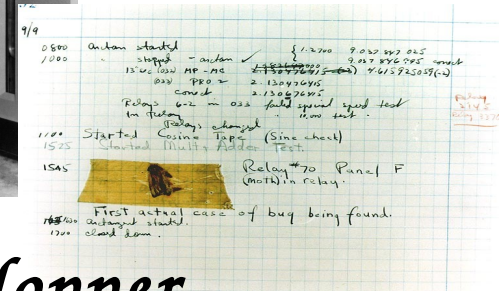 9/9
0800 antan started
1000 " stopped - antan ✓ { 1.2700 9.037 847 025
9.037 846 995 correct
13"uc (032) MP-MC 2.130476415 (-3) 4.615925059(-2)
(033) PRO 2 2.130476415
correct 2.130676415
Relays 6-2 in 033 failed special speed test
in relay " 10,000 test.
Relays changed
1100 Started Cosine Tape (Sine check)
1525 Started Mult+Adder Test.
1545 Relay #70 Panel F
(moth) in relay.
First actual case of bug being found.
1630 antangent started.
1700 closed down.
Relay